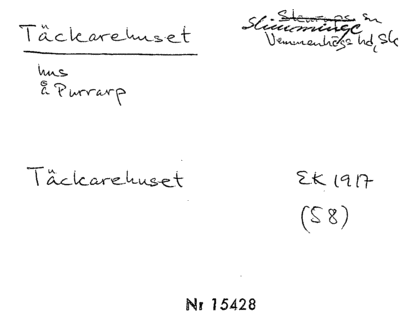 Täckarehuset
Skurups sn
Slimminge
Vemmenhögs hd, Sk
hus
å Purrarp
Täckarehuset
EK 1917
(58)
Nr 15428